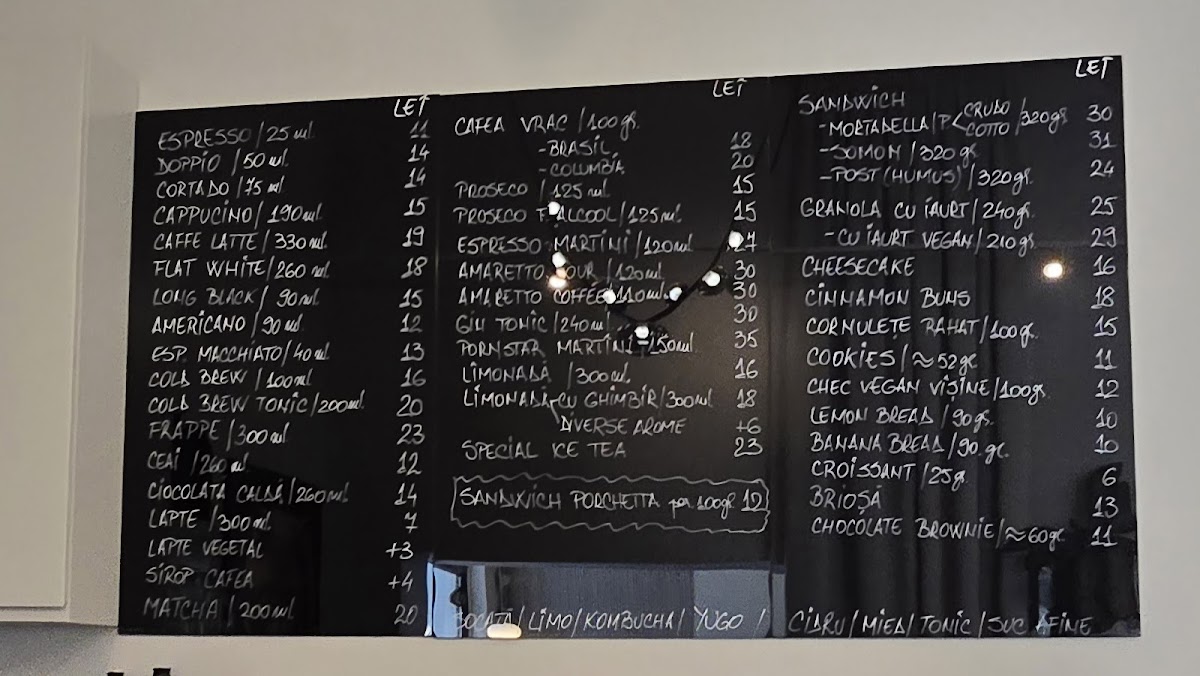 LEI
ESPRESSO/25 ml. 11
DOPPIO /50 ml. 14
CORTADO /75 ml 14
CAPPUCINO/190 ml 15
CAFFE LATTE/330 ml 19
FLAT WHITE/260 ml 18
LONG BLACK/90 ml 15
AMERICANO /90 ml. 12
ESP. MACCHIATO/40 ml 13
COLD BREW /100 ml 16
COLD BREW TONIC/200 ml. 20
FRAPPE /300 ml 23
CEAI /260 ml 12
CIOCOLATA CALDĂ/260 ml 14
LAPTE /300 ml 7
LAPTE VEGETAL +3
SIROP CAFEA +4
MATCHA /200 ml 20
LEI
CAFEA VRAC /100 gr.
-BRASIL 18
-COLUMBIA 20
PROSECO /125 ml 15
PROSECO F. ALCOOL/125 ml. 15
ESPRESSO MARTINI/120 ml 27
AMARETTO SOUR/120 ml 30
AMARETTO COFFEE/110 ml 30
GIN TONIC/240 ml 30
PORNSTAR MARTINI 150 ml 35
LIMONADĂ /300 ml 16
LIMONADĂ-CU GHIMBIR/300 ml 18
DIVERSE AROME +6
SPECIAL ICE TEA 23
SANDWICH PORCHETTA per 100gr 12
LEI
SANDWICH
-MORTADELLA/P< CRUDO COTTO /320gr 30
-SOMON /320 gr 31
-POST (HUMUS)/320gr. 24
GRANOLA CU IAURT/240gr. 25
-CU IAURT VEGAN/210gr. 29
CHEESECAKE 16
CINNAMON BUNS 18
CORNULEȚE RAHAT/100g. 15
COOKIES/≈52gr. 11
CHEC VEGAN VIȘINE/100gr 12
LEMON BREAD/90gr. 10
BANANA BREAD/90.gr. 10
CROISSANT/25g. 6
BRIOȘĂ 13
CHOCOLATE BROWNIE/≈60gr. 11
/LIMO/KOMBUCHA/ YUGO / CIDRU/MIED/TONIC/SUC AFINE